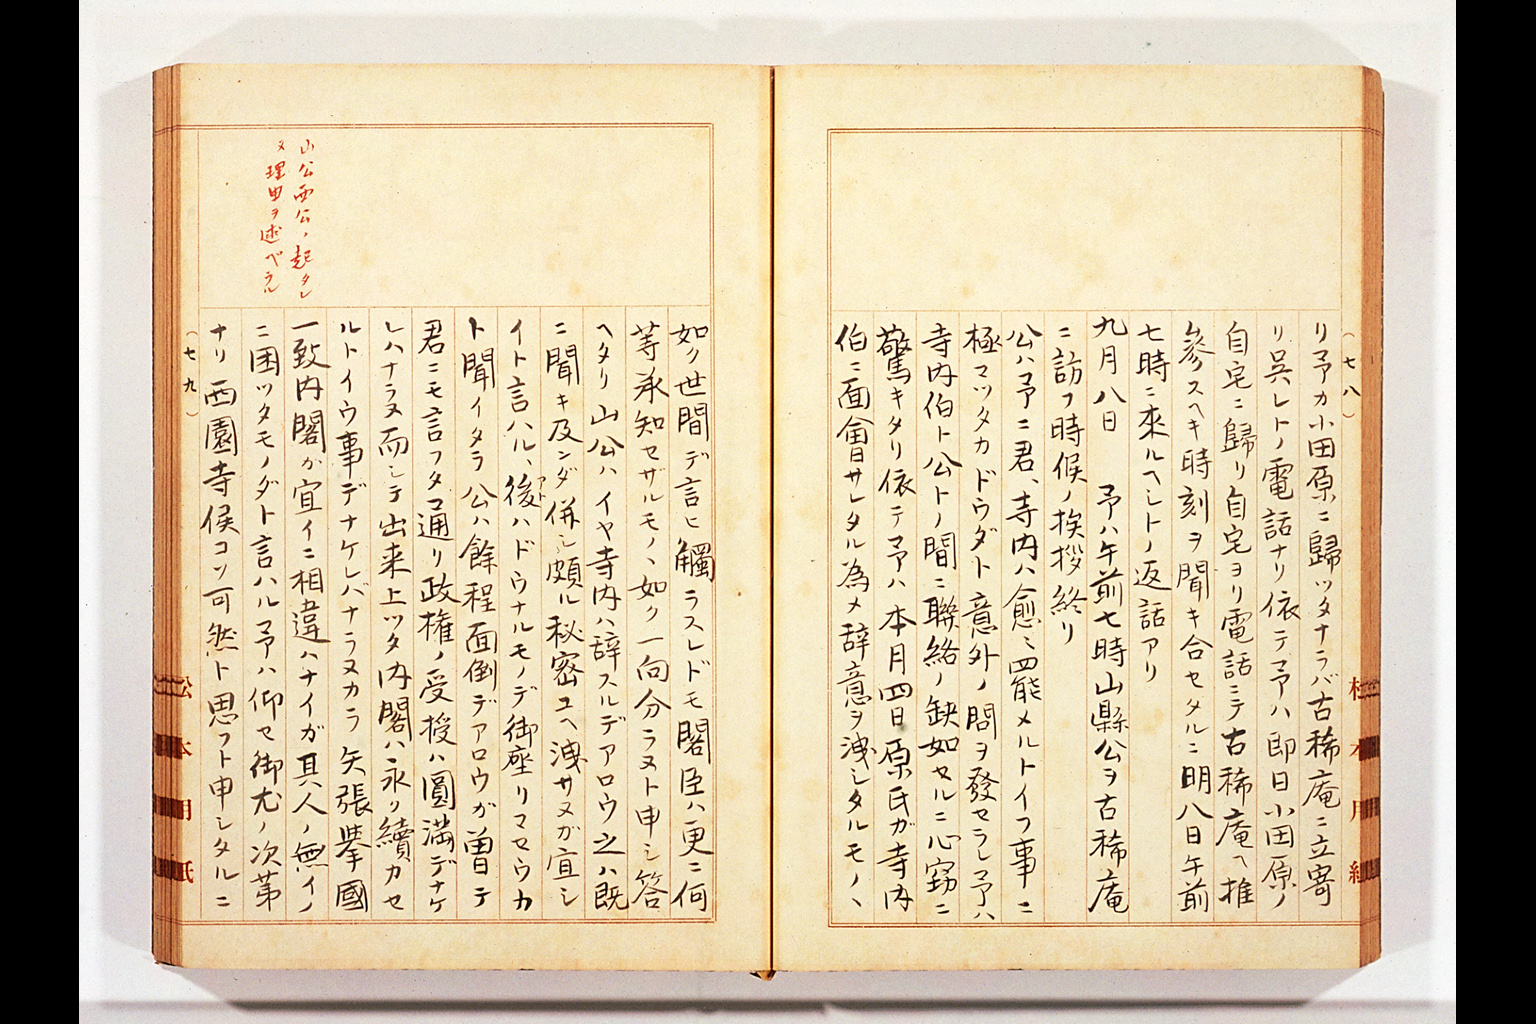 (七八)
リ予カ小田原ニ歸ツタナラバ古稀庵ニ立寄
リ呉レトノ電話ナリ依テ予ハ即日小田原ノ
自宅ニ歸リ自宅ヨリ電話ニテ古稀庵ヘ推
參スヘキ時刻ヲ聞キ合セタルニ明八日午前
七時ニ来ルヘシトノ返話アリ
九月八日 予ハ午前七時山縣公ヲ古稀庵
ニ訪フ時候ノ挨拶終リ
公ハ予ニ君、寺内ハ愈〻罷メルトイフ事ニ
極マツタカドウダト意外ノ問ヲ發セラレ予ハ
寺内伯ト公トノ間ニ聯絡ノ缺如セルニ心窃ニ
驚キタリ依テ予ハ本月四日原氏ガ寺内
伯ニ面會サレタル為メ辞意ヲ洩シタルモノヽ
如ク世間デ言ヒ觸ラスレドモ閣臣ハ更ニ何
等承知セザルモノヽ如ク一向分ラヌト申シ答
ヘタリ山公ハイヤ寺内ハ辞スルデアロウ之ハ既
ニ聞キ及ンダ併シ頗ル秘密ユヘ洩サヌガ宜シ
イト言ハル、後ハドウナルモノデ御座リマセウカ
アト
ト聞イタラ公ハ餘程面倒デアロウガ曽テ
君ニモ言フタ通リ政権ノ受授ハ圓満デナケ
レハナラヌ而シテ出来上ツタ内閣ハ永ク續カセ
ルトイウ事デナケレバナラヌカラ矢張擧國
一致内閣ガ宜イニ相違ハナイガ其人ノ無イノ
ニ困ツタモノダト言ハル予ハ仰セ御尤ノ次第
ナリ西園寺侯コソ可然ト思フト申シタルニ
山公西公ノ起タレ
ヌ理由ヲ述ベラル
(七九)
松本用紙